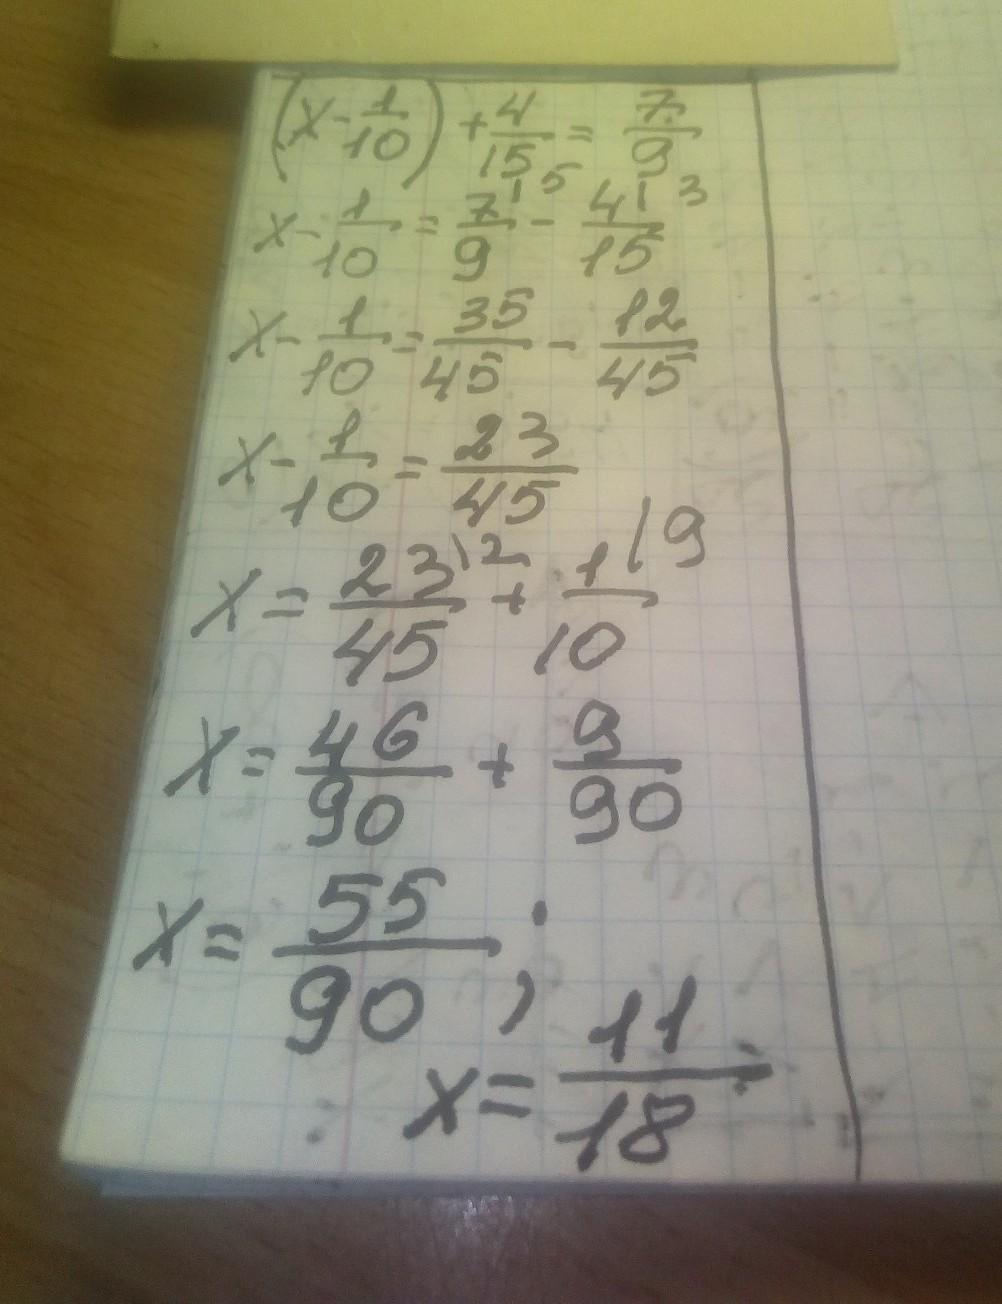 (x - 1/10) + 4/15 = 7/9
x - 1/10 = 7/9 \5 - 4/15 \3
x - 1/10 = 35/45 - 12/45
x - 1/10 = 23/45
x = 23/45 \2 + 1/10 \9
x = 46/90 + 9/90
x = 55/90 ;
x = 11/18